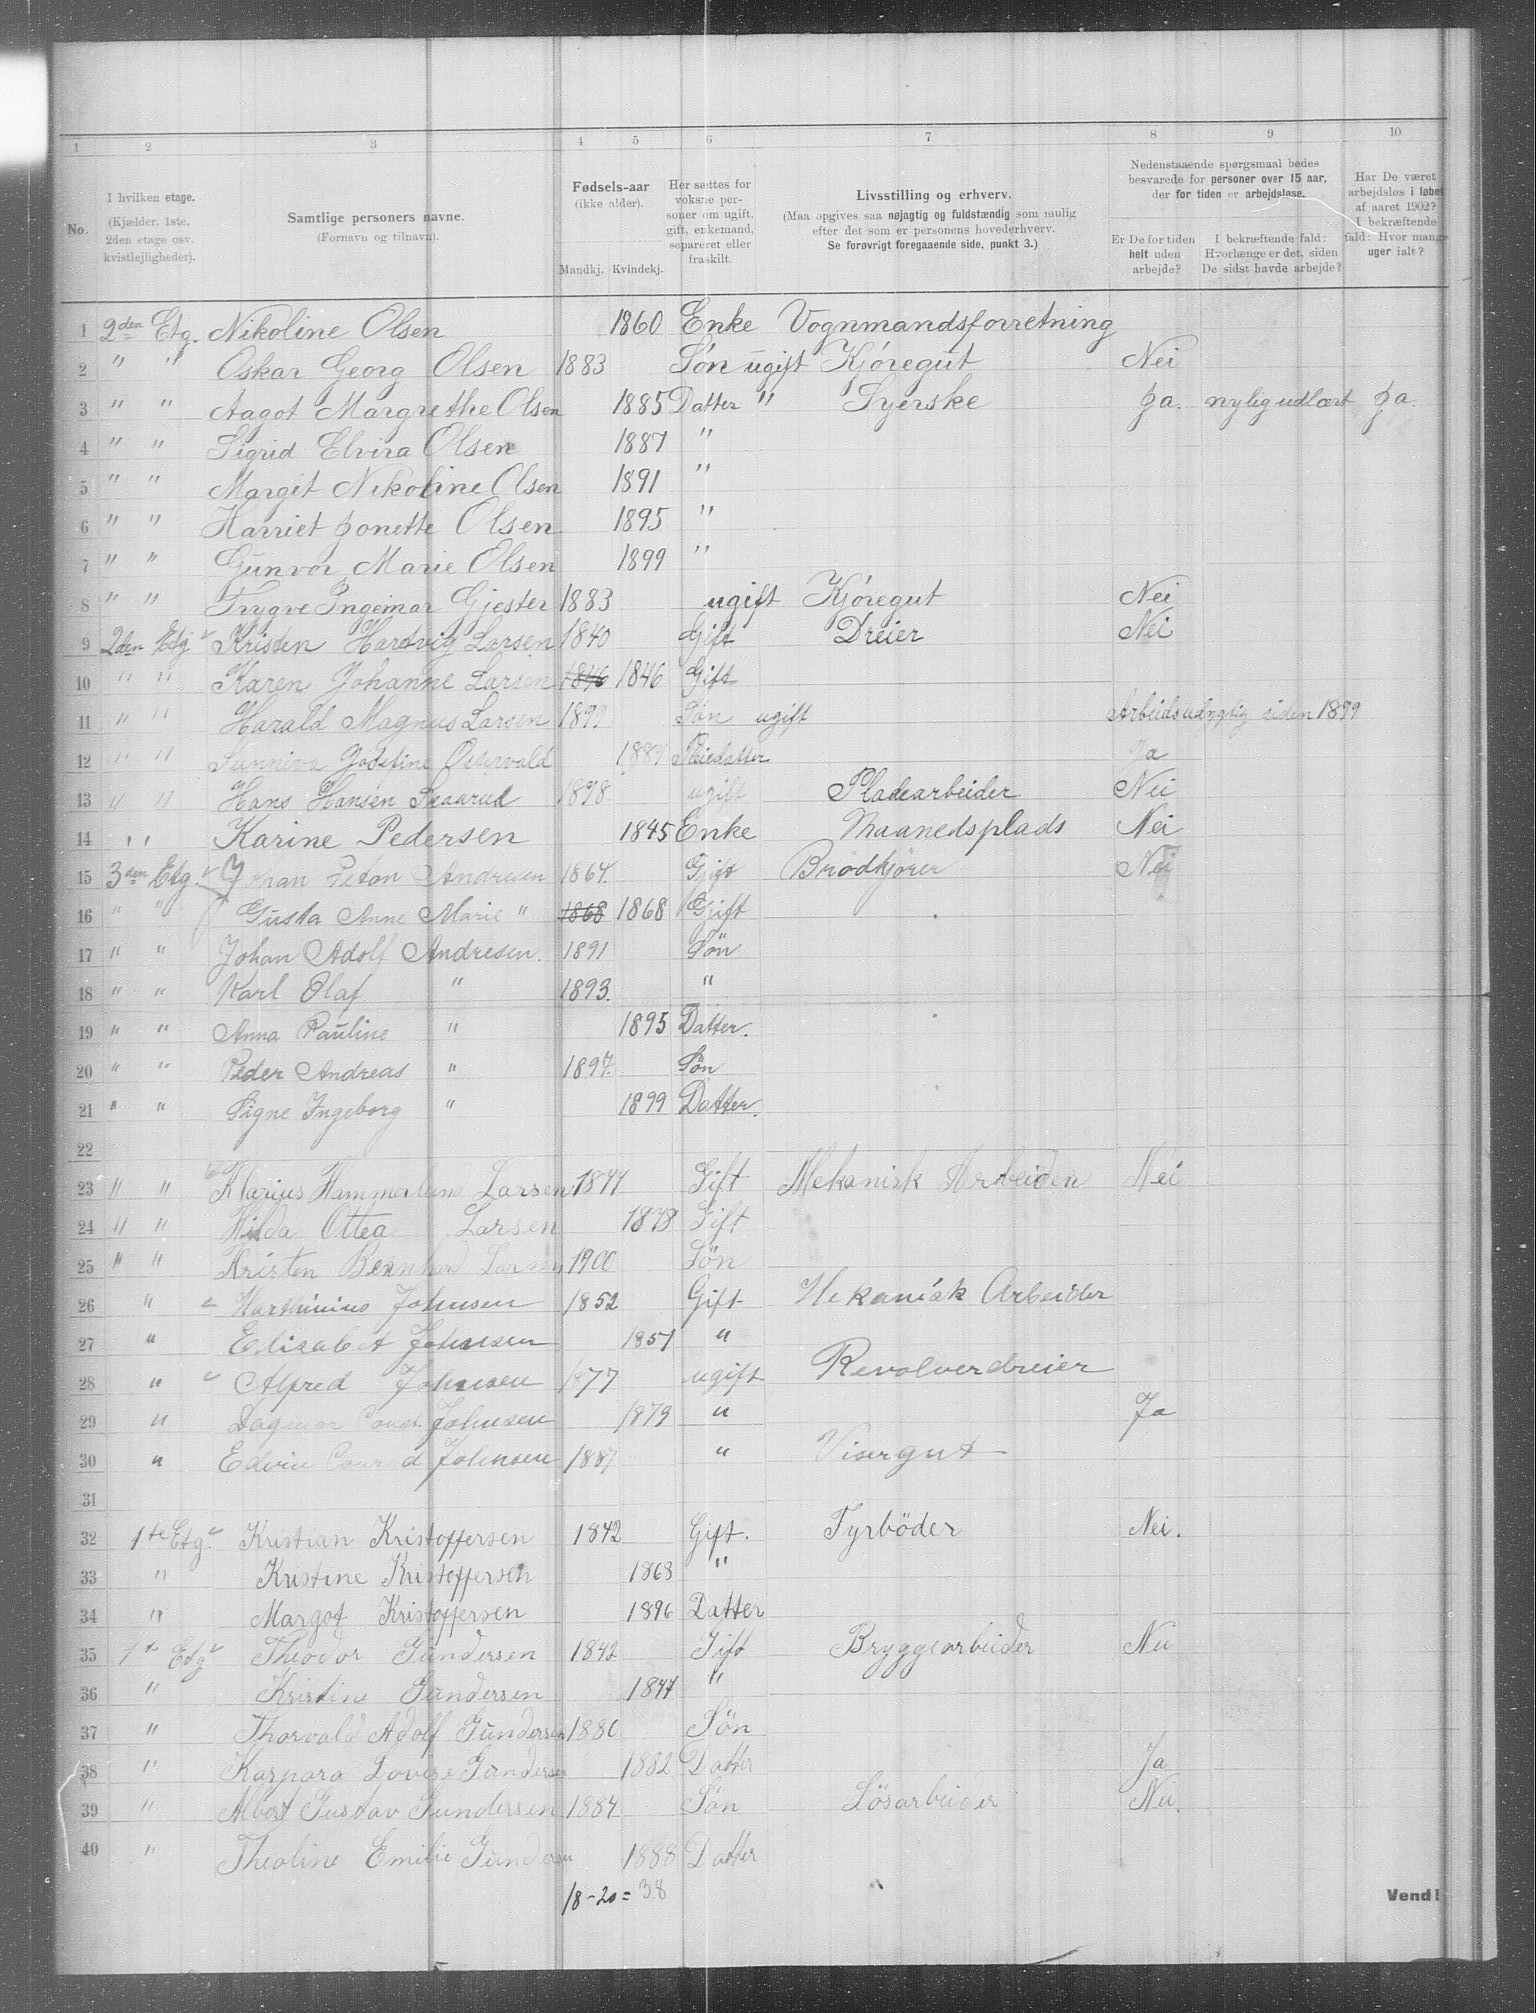 1 2 3 4 5 6 7 8 9 10
No.
I hvilken etage.
(Kjælder, 1ste,
2den etage osv.
kvistlejligheder).
Samtlige personers navne.
(Fornavn og tilnavn).
Fødsels-aar
(ikke alder).
Mandkj. Kvindekj.
Her sættes for
voksne per-
soner om ugift,
gift, enkemand,
separeret eller
fraskilt.
Livsstilling og erhverv.
(Maa opgives saa nøjagtig og fuldstændig som mulig
efter det som er personens hovederhverv.
Se forøvrigt foregaaende side, punkt 3.)
Nedenstaaende spørgsmaal bedes
besvarede for personer over 15 aar,
der for tiden er arbejdsløse.
Er De for tiden
helt uden
arbejde?
I bekræftende fald:
Hvorlænge er det, siden
De sidst havde arbejde?
Har De været
arbejdsløs i løbet
af aaret 1902?
I bekræftende
fald: Hvor mange
uger ialt?
1 2den Etg. Nikoline Olsen 1860 Enke Vognmandsforretning
2 " " Oskar Georg Olsen 1883 Søn ugift Kjøregut Nei
3 " " Aagot Margrethe Olsen 1885 Datter " Syerske Ja. nylig udlært Ja.
4 " " Sigrid Elvira Olsen 1887 "
5 " " Margit Nikoline Olsen 1891 "
6 " " Harriet Jonette Olsen 1895 "
7 " " Gunvor Marie Olsen 1899 "
8 " " Trygve Ingemar Gjester 1883 ugift Kjøregut Nei
9 2den Etg Kristen Hartvig Larsen 1840 Gift Dreier Nei
10 " " Karen Johanne Larsen 1846 1846 Gift
11 " " Harald Magnus Larsen Søn ugift siden 1899
12 " " Sunniva Josefine Ostervald Pleiedatter Ja
13 " " Hans Hansen Skaarud 1898 ugift Pladearbeider Nei
14 " " Karine Pedersen 1845 Enke Maanedsplads Nei
15 3den Etg. Johan Andresen 1867. Gift Brødkjører Nei
16 " " Gusta Anne Marie " 1868 1868 Gift
17 " " Johan Adolf Andresen. 1891 Søn
18 " " Karl Olaf " 1893. "
19 " " Anna Pauline " 1895 Datter.
20 " " Peder Andreas " 1897. Søn
21 " " Signe Ingeborg " 1899 Datter.
22
23 " " Marius Hammerlund Larsen 1877 Gift Mekanisk Arbeider Nei
24 " " Hilda Ottea Larsen 1878 Gift
25 " " Kristen Bernhard Larsen 1900 Søn
26 " Marthinius Johnsen 1852 Gift Mekanisk Arbeider
27 " Elisabet Johnsen 1851 "
28 " Alfred Johnsen 1877 ugift Revolverdreier
29 " Dagmar Const. Johnsen 1879 " Ja
30 " Edvin Conrad Johnsen 1887 " Visergut
31
32 1te Etg. Kristian Kristoffersen 1842 Gift. Fyrbøder Nei.
33 " Kristine Kristoffersen 1868 "
34 " Margot Kristoffersen 1896 Datter
35 1te Etg Theodor Gundersen 1842 Gift Bryggearbeider Nei
36 " Kristine Gundersen 1847 "
37 " Thorvald Adolf Gundersen 1880 Søn
38 " Kaspara Lovise Gundersen 1882 Datter Ja
39 " Albert Gustav Gundersen 1884 Søn Løsarbeider Nei.
40 " Theoline Emilie Gundersen 1888 Datter
18-20=38
Vend!